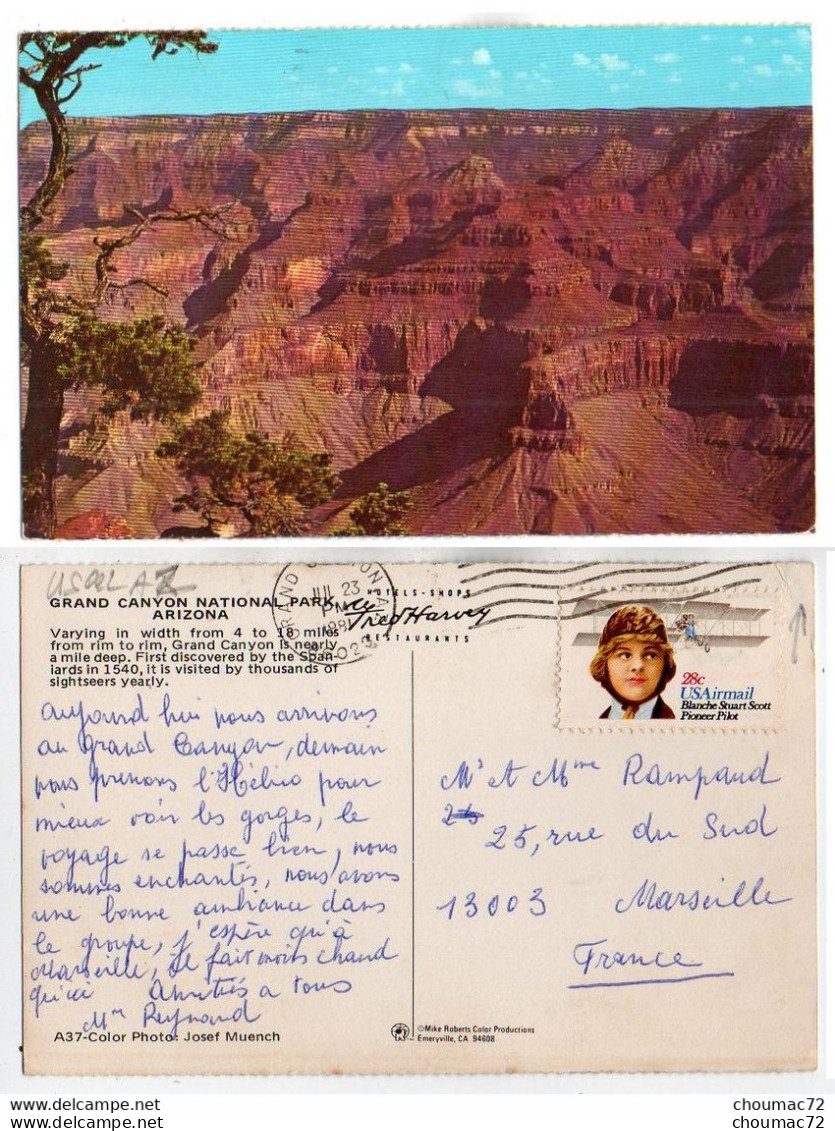 GRAND CANYON NATIONAL PARK,
ARIZONA
Varying in width from 4 to 18 miles
from rim to rim, Grand Canyon is nearly
a mile deep. First discovered by the Span-
iards in 1540, it is visited by thousands of
sightseers yearly.
GRAND CANYON
JUL 23
PM
HOTELS-SHOPS
Fred Harvey
RESTAURANTS
28c
USAirmail
Blanche Stuart Scott
Pioneer Pilot
aujourd'hui nous arrivons
au grand Canyon, demain
nous prenons l'Hélico pour
mieux voir les gorges, le
voyage se passe bien, nous
sommes enchantés, nous avons
une bonne ambiance dans
le groupe, j'espère qu'à
Marseille, il fait moins chaud
qu'ici Amitiés a tous
Mm Reynaud
Mr et Mme Rampaud
25, rue du Sud
13003 Marseille
France
A37-Color Photo: Josef Muench
©Mike Roberts Color Productions
Emeryville, CA 94608
choumac72
choumac72
delcampe.net
choumac72
choumac72